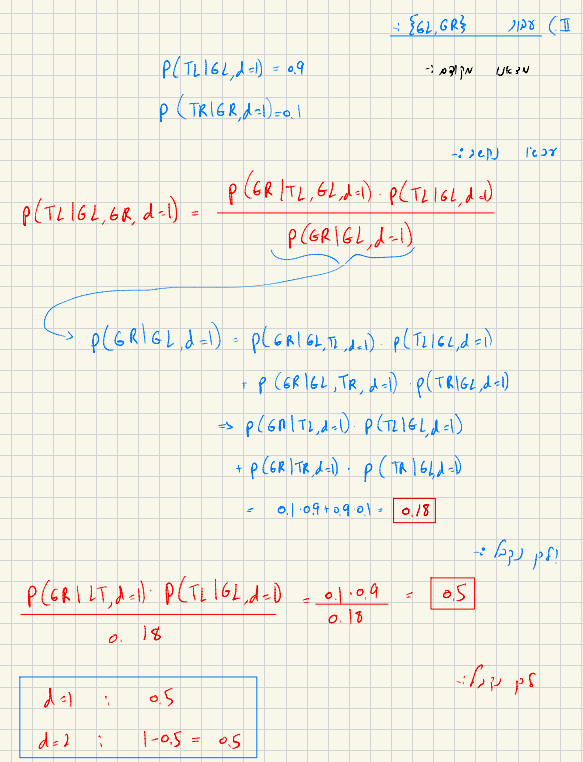 II.) עבור {GL,GR} :-
מצאנו מקודם :-
P(TL|GL,d=1) = 0.9
P(TR|GR,d=1)=0.1
עכשיו נקשב :-
P(TL|GL,GR,d=1) = P(GR|TL,GL,d=1)·P(TL|GL,d=1) / P(GR|GL,d=1)
P(GR|GL,d=1) = P(GR|GL,TL,d=1)· P(TL|GL,d=1)
+ P(GR|GL,TR,d=1) ·P(TR|GL,d=1)
=> P(GR|TL,d=1)· P(TL|GL,d=1)
+ P(GR|TR,d=1)· P(TR|GL,d=1)
= 0.1·0.9+0.9·0.1 = 0.18
ולכן נקבל :-
P(GR|LT,d=1)· P(TL|GL,d=1) / 0.18 = 0.1·0.9 / 0.18 = 0.5
לכן נקבל:-
d=1 : 0.5
d=2 : 1-0.5 = 0.5